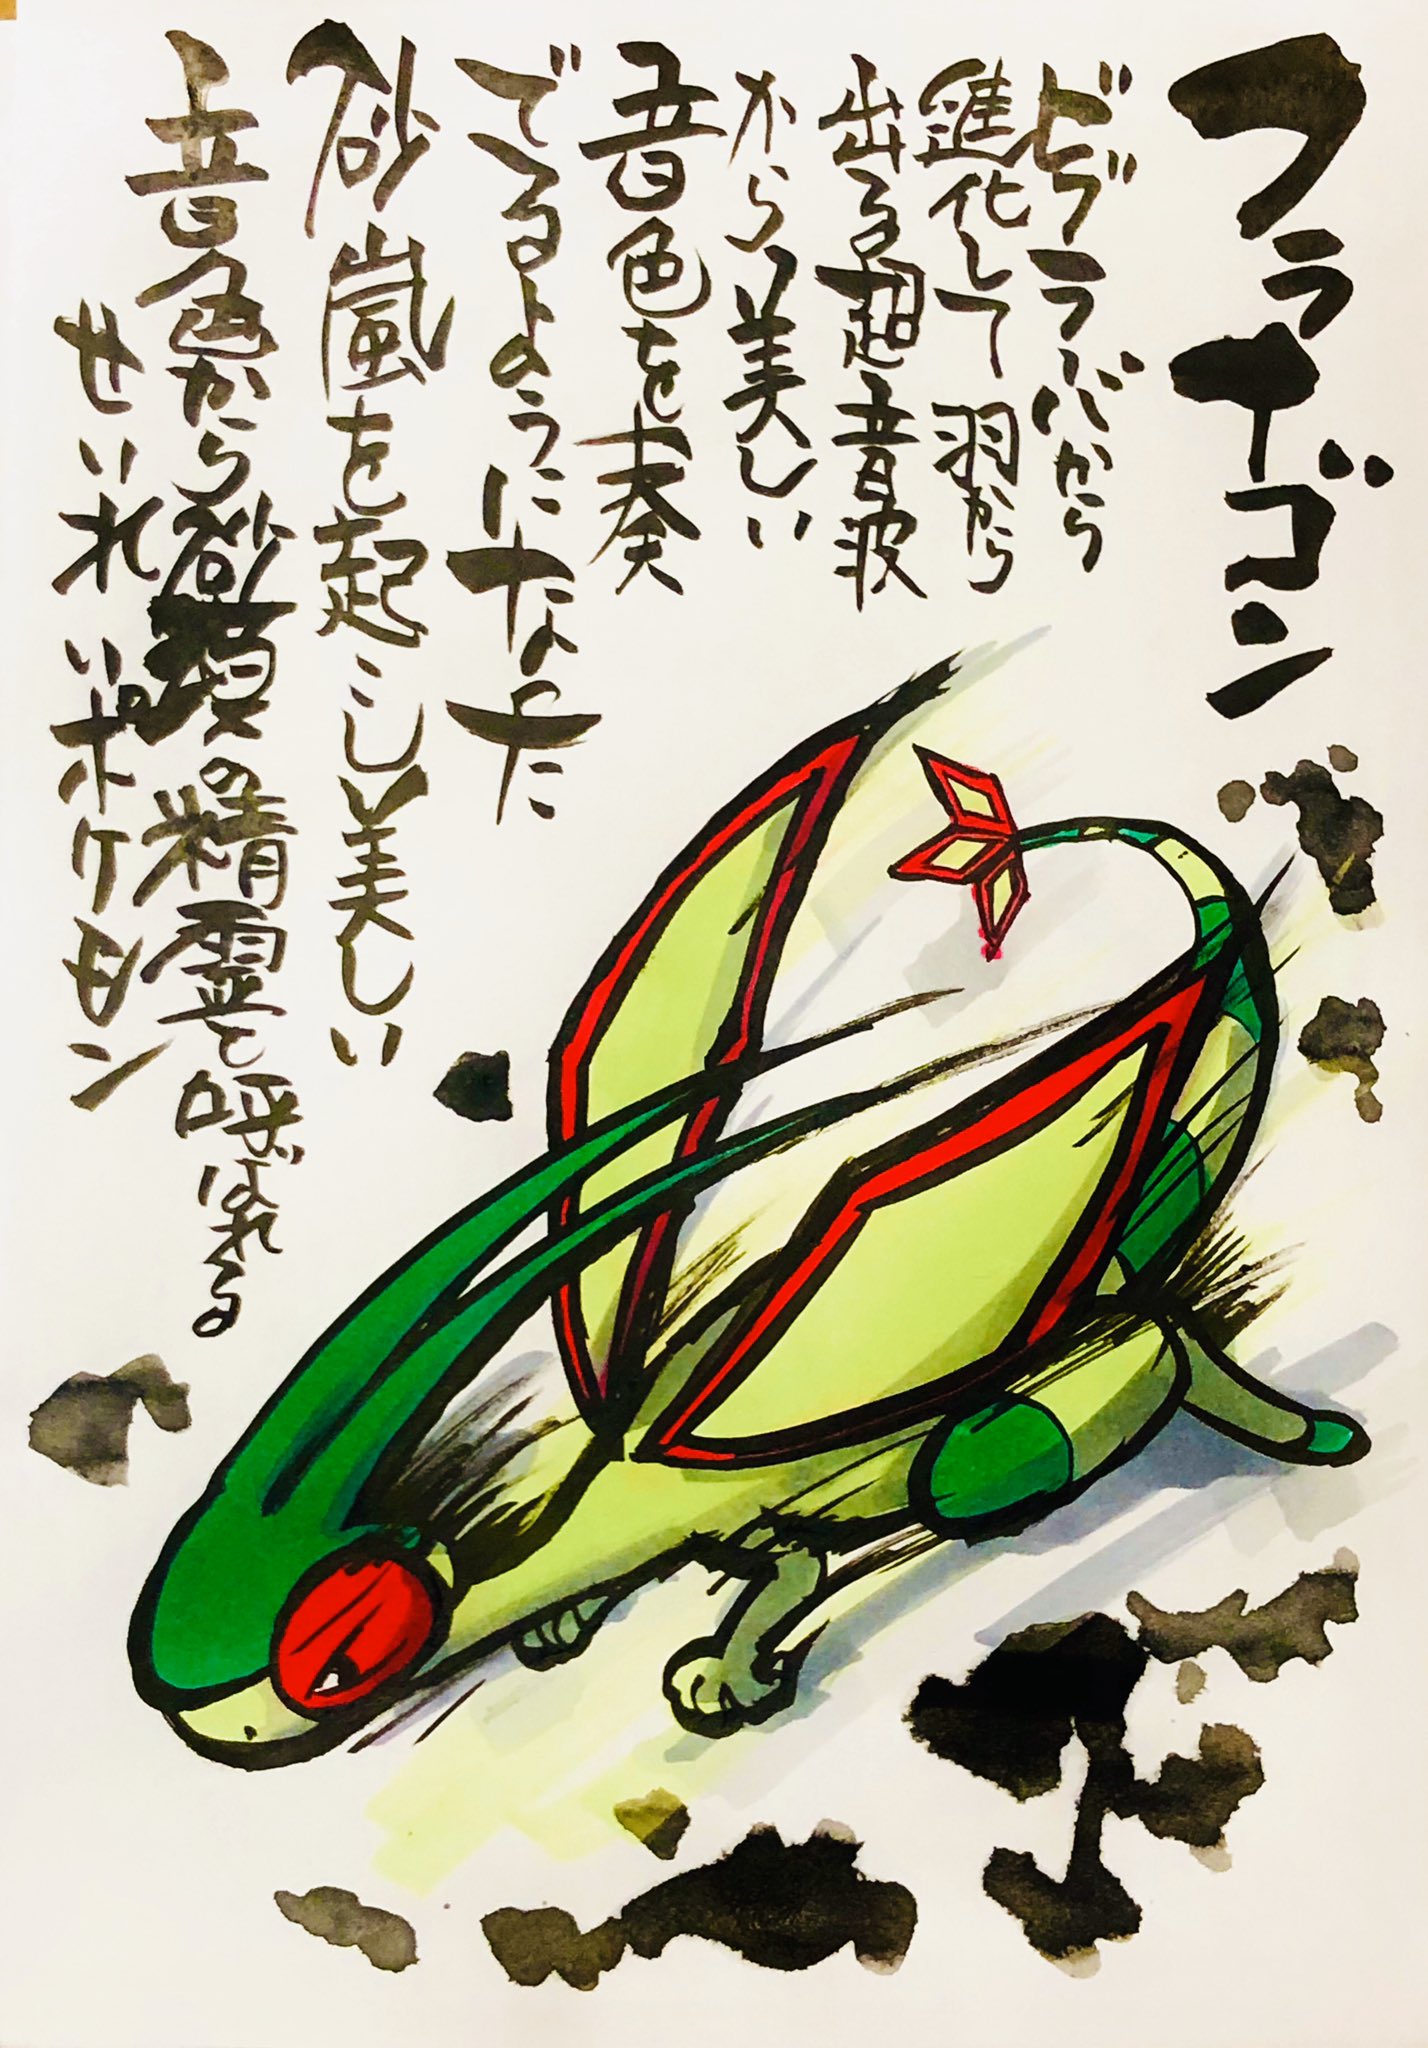 フライゴン
ビブラーバから
進化して 羽から
出る超音波
から美しい
音色を奏
でるようになった
砂嵐を起こし美しい
音色から砂漠の精霊と呼ばれる
せいれいポケモン